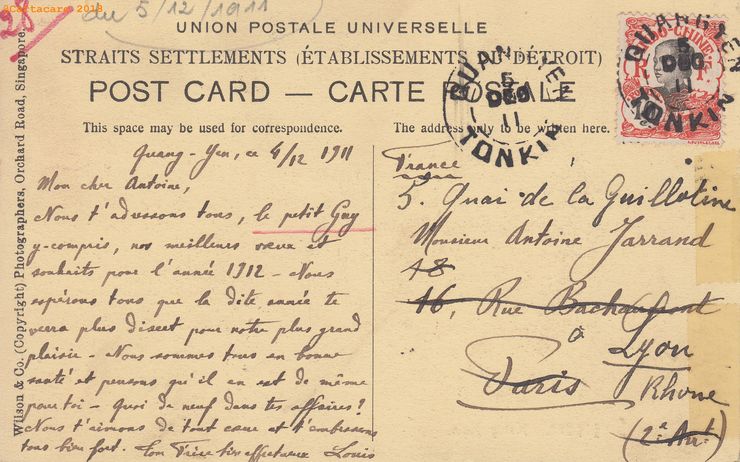 ©Cartacaro 2018
28
du 5/12/1911
UNION POSTALE UNIVERSELLE
STRAITS SETTLEMENTS (ÉTABLISSEMENTS DU DÉTROIT)
POST CARD — CARTE POSTALE
This space may be used for correspondence.
The address only to be written here.
Wilson & Co. (Copyright) Photographers, Orchard Road, Singapore.
QUANG YEN
5
DEC
11
TONKIN
INDO-CHINE
QUANG YEN
5
DEC
11
TONKIN
10
Quang-Yen, ce 4/12 1911
Mon cher Antoine,
Nous t'adressons tous, le petit Guy
y-compris, nos meilleurs vœux et
souhaits pour l'année 1912 - Nous
espérons tous que la dite année te
verra plus discret pour notre plus grand
plaisir - Nous sommes tous en bonne
santé et pensons qu'il en est de même
pour toi - Quoi de neuf dans tes affaires?
Nous t'aimons de tout cœur et t'embrassons
tous bien fort. Ton frère très affectueux Louis
France
5. Quai de la Guillotine
Monsieur Antoine Jarrand
48
16, Rue Bachaumont
à Lyon
Paris Rhône
(2e Arrt)